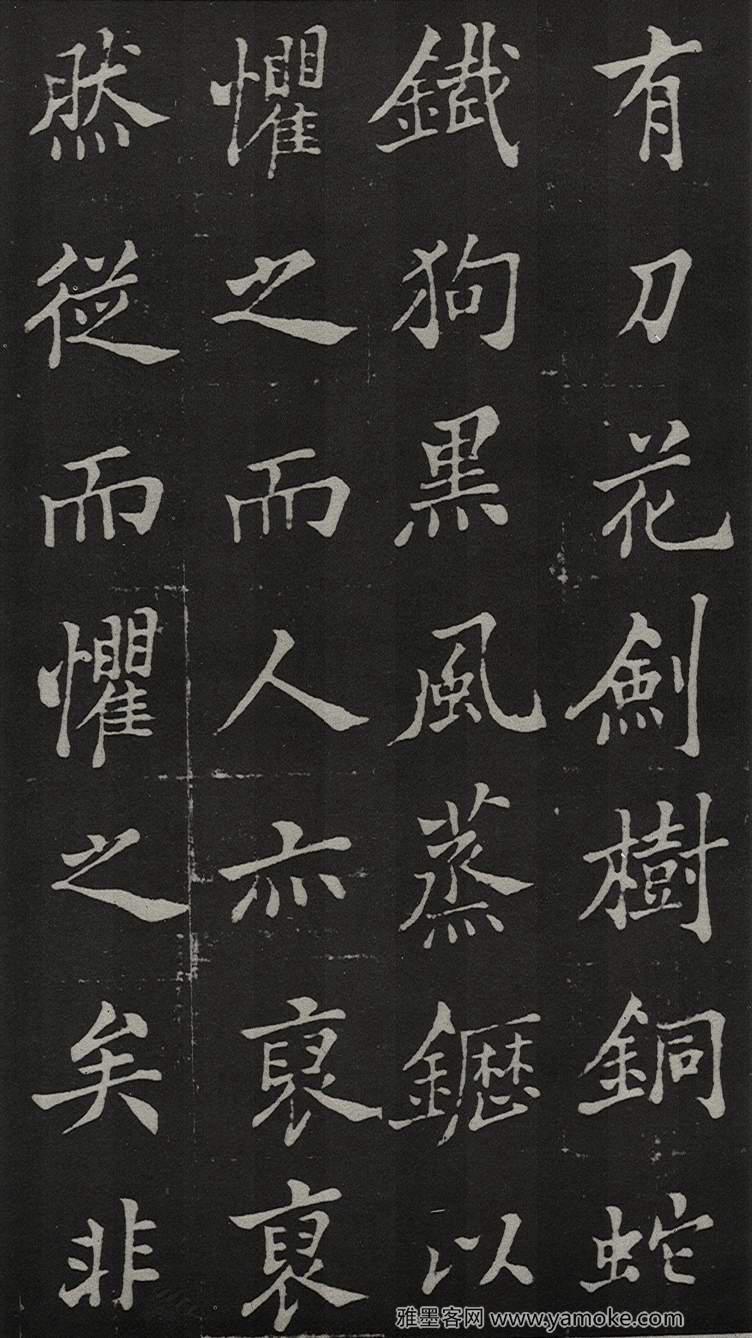 有刀花劍樹銅蛇
鐵狗黑風蒸䥶以
懼之而人亦袞袞
然從而懼之矣非
雅墨客网 www.yamoke.com